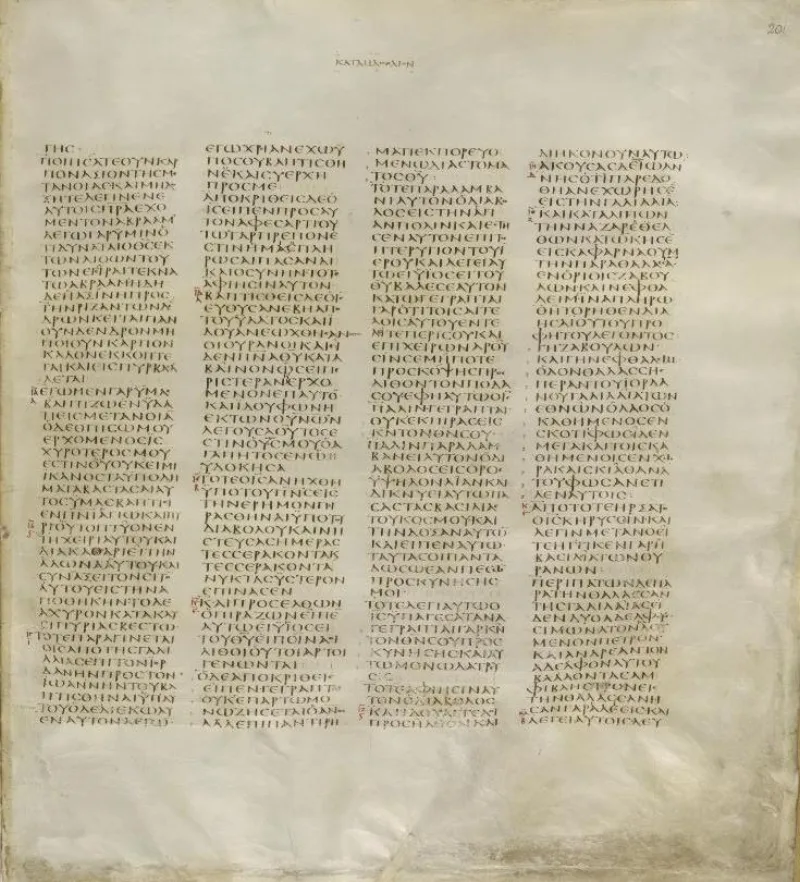 ΚΑΤΑΜΑΘΘΑΙΟΝ
ΓΗϹ
ΠΟΙΗϹΑΤΕΟΥΝΚΑΡ
ΠΟΝΑΞΙΟΝΤΗϹΜΕ
ΤΑΝΟΙΑϹΚΑΙΜΗΔΟ
ΞΗΤΕΛΕΓΕΙΝΕΝΕ
ΑΥΤΟΙϹΠΡΑΕΧΟ
ΜΕΝΤΟΝΑΒΡΑΑΜ
ΛΕΓΩΓΑΡΥΜΙΝΟ
ΤΙΔΥΝΑΤΑΙΟΘϹΕΚ
ΤΩΝΛΙΘΩΝΤΟΥ
ΤΩΝΕΓΙΡΑΙΤΕΚΝΑ
ΤΩΑΒΡΑΑΜΗΔΗ
ΔΕΗΑΞΙΝΗΠΡΟϹ
ΤΗΝΡΙΖΑΝΤΩΝΔΕ
ΔΡΩΝΚΕΙΤΑΙΠΑΝ
ΟΥΝΔΕΝΔΡΟΝΜΗ
ΠΟΙΟΥΝΚΑΡΠΟΝ
ΚΑΛΟΝΕΚΚΟΠΤΕ
ΤΑΙΚΑΙΕΙϹΠΥΡΒΑΛ
ΛΕΤΑΙ
ΕΓΩΜΕΝΓΑΡΥΜΑϹ
ΒΑΠΤΙΖΩΕΝΥΔΑ
ΤΙΕΙϹΜΕΤΑΝΟΙΑ
ΟΔΕΟΠΙϹΩΜΟΥ
ΕΡΧΟΜΕΝΟϹΙϹ
ΧΥΡΟΤΕΡΟϹΜΟΥ
ΕϹΤΙΝΟΥΟΥΚΕΙΜΙ
ΙΚΑΝΟϹΤΑΥΠΟΔΗ
ΜΑΤΑΒΑϹΤΑϹΑΙΑΥ
ΤΟϹΥΜΑϹΒΑΠΤΙϹΙ
ΕΝΠΝΙΑΓΙΩΚΑΙΠΥ
ΡΙΟΥΤΟΠΤΥΟΝΕΝ
ΤΗΧΕΙΡΙΑΥΤΟΥΚΑΙ
ΔΙΑΚΑΘΑΡΙΕΙΤΗΝ
ΑΛΩΝΑΑΥΤΟΥΚΑΙ
ϹΥΝΑΞΕΙΤΟΝϹΙΤΟ
ΑΥΤΟΥΕΙϹΤΗΝΑ
ΠΟΘΗΚΗΝΤΟΔΕ
ΑΧΥΡΟΝΚΑΤΑΚΑΥ
ϹΙΠΥΡΙΑϹΒΕϹΤΩ
ΤΟΤΕΠΑΡΑΓΙΝΕΤΑΙ
ΟΙϹΑΠΟΤΗϹΓΑΛΙ
ΛΑΙΑϹΕΠΙΤΟΝΙΟΡ
ΔΑΝΗΝΠΡΟϹΤΟΝ
ΙΩΑΝΝΗΝΤΟΥΒΑ
ΠΤΙϹΘΗΝΑΙΥΠΑΥ
ΤΟΥΟΔΕΔΙΕΚΩΛΥ
ΕΝΑΥΤΟΝΛΕΓΩ
ΕΓΩΧΡΙΑΝΕΧΩΥ
ΠΟϹΟΥΒΑΠΤΙϹΘΗ
ΝΕΚΑΙϹΥΕΡΧΗ
ΠΡΟϹΜΕ
ΑΠΟΚΡΙΘΕΙϹΔΕΟ
ΙϹΕΙΠΕΝΠΡΟϹΑΥ
ΤΟΝΑΦΕϹΑΡΤΙΟΥ
ΤΩΓΑΡΠΡΕΠΟΝΕ
ϹΤΙΝΗΜΑϹΠΛΗ
ΡΩϹΑΙΠΑϹΑΝΔΙ
ΚΑΙΟϹΥΝΗΝΤΟΤΕ
ΑΦΙΗϹΙΝΑΥΤΟΝ
ΒΑΠΤΙϹΘΕΙϹΔΕΟΙϹ
ΕΥΘΥϹΑΝΕΒΗΑΠΟ
ΤΟΥΥΔΑΤΟϹΚΑΙΙ
ΔΟΥΑΝΕΩΧΘΗϹΑΝ
ΟΙΟΥΡΑΝΟΙΚΑΙΙ
ΔΕΝΠΝΑΘΥΚΑΤΑ
ΒΑΙΝΟΝΩϹΕΙΠΕ
ΡΙϹΤΕΡΑΝΕΡΧΟ
ΜΕΝΟΝΕΠΑΥΤΟ
ΚΑΙΙΔΟΥΦΩΝΗ
ΕΚΤΩΝΟΥΝΩΝ
ΛΕΓΟΥϹΑΟΥΤΟϹΕ
ϹΤΙΝΟΥϹΜΟΥΟΑ
ΓΑΠΗΤΟϹΕΝΩΗΥ
ΔΟΚΗϹΑ
ΤΟΤΕΟΙϹΑΝΗΧΘΗ
ΥΠΟΤΟΥΠΝϹΕΙϹ
ΤΗΝΕΡΗΜΟΝΠΙ
ΡΑϹΘΗΝΑΙΥΠΟΤΟΥ
ΔΙΑΒΟΛΟΥΚΑΙΝΗ
ϹΤΕΥϹΑϹΗΜΕΡΑϹ
ΤΕϹϹΕΡΑΚΟΝΤΑΚ
ΤΕϹϹΕΡΑΚΟΝΤΑ
ΝΥΚΤΑϹΥϹΤΕΡΟΝ
ΕΠΙΝΑϹΕΝ
ΚΑΙΠΡΟϹΕΛΘΩΝ
ΟΠΙΡΑΖΩΝΕΙΠΕ
ΑΥΤΩΕΙΥΙΟϹΕΙ
ΤΟΥΘΥΕΙΠΟΝΙΝΑ
ΑΙΘΟΙΟΥΤΟΙΑΡΤΟΙ
ΓΕΝΩΝΤΑΙ
ΟΔΕΑΠΟΚΡΙΘΕΙϹ
ΕΙΠΕΝΓΕΓΡΑΠΤΑΙ
ΟΥΚΕΠΑΡΤΩΜΟ
ΝΩΖΗϹΕΤΑΙΟΑΝΟϹ
ΑΛΛΕΠΙΠΑΝΤΙΡΗ
ΜΑΤΙΕΚΠΟΡΕΥΟ
ΜΕΝΩΔΙΑϹΤΟΜΑ
ΤΟϹΘΥ
ΤΟΤΕΠΑΡΑΛΑΜΒΑ
ΝΙΑΥΤΟΝΟΔΙΑΒΟ
ΛΟϹΕΙϹΤΗΝΑΓΙ
ΑΝΠΟΛΙΝΚΑΙΕϹΤΗ
ϹΕΝΑΥΤΟΝΕΠΙΤΟ
ΠΤΕΡΥΓΙΟΝΤΟΥΙ
ΕΡΟΥΚΑΙΛΕΓΕΙΑΥ
ΤΩΕΙΥΙΟϹΕΙΤΟΥ
ΘΥΒΑΛΕϹΕΑΥΤΟΝ
ΚΑΤΩΓΕΓΡΑΠΤΑΙ
ΓΑΡΟΤΙΤΟΙϹΑΓΓΕ
ΛΟΙϹΑΥΤΟΥΕΝΤΕ
ΛΙΤΕΠΕΡΙϹΟΥΚΑΙ
ΕΠΙΧΕΙΡΩΝΑΡΟΥ
ϹΙΝϹΕΜΗΠΟΤΕ
ΠΡΟϹΚΟΨΗϹΠΡΟϹ
ΛΙΘΟΝΤΟΝΠΟΔΑ
ϹΟΥΕΦΗΑΥΤΩΟΙϹ
ΠΑΛΙΝΓΕΓΡΑΠΤΑΙ
ΟΥΚΕΚΠΙΡΑϹΕΙϹ
ΚΝΤΟΝΘΝϹΟΥ
ΠΑΛΙΝΠΑΡΑΛΑΜ
ΒΑΝΕΙΑΥΤΟΝΟΔΙ
ΑΒΟΛΟϹΕΙϹΟΡΟϹ
ΥΨΗΛΟΝΛΙΑΝΚΑΙ
ΔΙΚΝΥΕΙΑΥΤΩΠΑ
ϹΑϹΤΑϹΒΑϹΙΛΕΙΑϹ
ΤΟΥΚΟϹΜΟΥΚΑΙ
ΤΗΝΔΟΞΑΝΑΥΤΩ
ΚΑΙΕΙΠΕΝΑΥΤΩ
ΤΑΥΤΑϹΟΙΠΑΝΤΑ
ΔΩϹΩΕΑΝΠΕϹΩ
ΠΡΟϹΚΥΝΗϹΗϹ
ΜΟΙ
ΤΟΤΕΛΕΓΙΑΥΤΩΟ
ΙϹΥΠΑΓΕϹΑΤΑΝΑ
ΓΕΓΡΑΠΤΑΙΓΑΡΚΝ
ΤΟΝΘΝϹΟΥΠΡΟϹ
ΚΥΝΗϹΗϹΚΑΙΑΥ
ΤΩΜΟΝΩΛΑΤΡΕΥ
ϹΙϹ
ΤΟΤΕΑΦΙΗϹΙΝΑΥ
ΤΟΝΟΔΙΑΒΟΛΟϹ
ΚΑΙΙΔΟΥΑΓΓΕΛΟΙ
ΠΡΟϹΗΛΘΟΝΚΑΙ
ΔΙΗΚΟΝΟΥΝΑΥΤΩ
ΑΚΟΥϹΑϹΔΕΟΤΙΙΩΑΝ
ΝΗϹΠΑΡΕΔΟ
ΘΗΑΝΕΧΩΡΗϹΕ
ΕΙϹΤΗΝΓΑΛΙΛΑΙΑ
ΚΑΙΚΑΤΑΛΙΠΩΝ
ΤΗΝΝΑΖΑΡΕΘΕΛ
ΘΩΝΚΑΤΩΚΗϹΕ
ΕΙϹΚΑΦΑΡΝΑΟΥΜ
ΤΗΝΠΑΡΑΘΑΛΑϹϹΑ
ΕΝΟΡΙΟΙϹΖΑΒΟΥ
ΛΩΝΚΑΙΝΕΦΘΑ
ΛΕΙΜΙΝΑΠΛΗΡΩ
ΘΗΤΟΡΗΘΕΝΔΙΑ
ΗϹΑΙΟΥΤΟΥΠΡΟ
ΦΗΤΟΥΛΕΓΟΝΤΟϹ
ΓΗΖΑΒΟΥΛΩΝ
ΚΑΙΓΗΝΕΦΘΑΛΙΜ
ΟΔΟΝΘΑΛΑϹϹΗϹ
ΠΕΡΑΝΤΟΥΙΟΡΔΑ
ΝΟΥΓΑΛΙΛΑΙΑΤΩΝ
ΕΘΝΩΝΟΛΑΟϹΟ
ΚΑΘΗΜΕΝΟϹΕΝ
ϹΚΟΤΙΦΩϹΙΔΕΝ
ΜΕΓΑΚΑΙΤΟΙϹΚΑ
ΘΗΜΕΝΟΙϹΕΝΧΩ
ΡΑΚΑΙϹΚΙΑΘΑΝΑ
ΤΟΥΦΩϹΑΝΕΤΙ
ΛΕΝΑΥΤΟΙϹ
ΑΠΟΤΟΤΕΗΡΞΑΤΟ
ΟΙϹΚΗΡΥϹϹΙΝΚΑΙ
ΛΕΓΙΝΜΕΤΑΝΟΕΙ
ΤΕΗΓΓΙΚΕΝΓΑΡΗ
ΒΑϹΙΛΙΑΤΩΝΟΥ
ΡΑΝΩΝ
ΠΕΡΙΠΑΤΩΝΔΕΠΑ
ΡΑΤΗΝΘΑΛΑϹϹΑΝ
ΤΗϹΓΑΛΙΛΑΙΑϹΕΙ
ΔΕΝΔΥΟΑΔΕΛΦΟΥϹ
ϹΙΜΩΝΑΤΟΝΛΕΓΟ
ΜΕΝΟΝΠΕΤΡΟΝ
ΚΑΙΑΝΔΡΕΑΝΤΟΝ
ΑΔΕΛΦΟΝΑΥΤΟΥ
ΒΑΛΛΟΝΤΑϹΑΜ
ΦΙΒΛΗϹΤΡΟΝΕΙϹ
ΤΗΝΘΑΛΑϹϹΑΝΗ
ϹΑΝΓΑΡΑΛΕΕΙϹΚΑΙ
ΛΕΓΕΙΑΥΤΟΙϹΔΕΥ